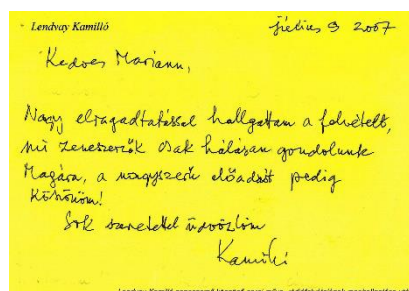 Lendvay Kamilló
július 9 2007
Kedves Mariann,
Nagy elragadtatással hallgattam a felvételt,
mi zeneszerzők csak hálásan gondolunk
Magára, a nagyszerű előadást pedig
köszönöm!
Sok szeretettel üdvözlöm
Kamilló